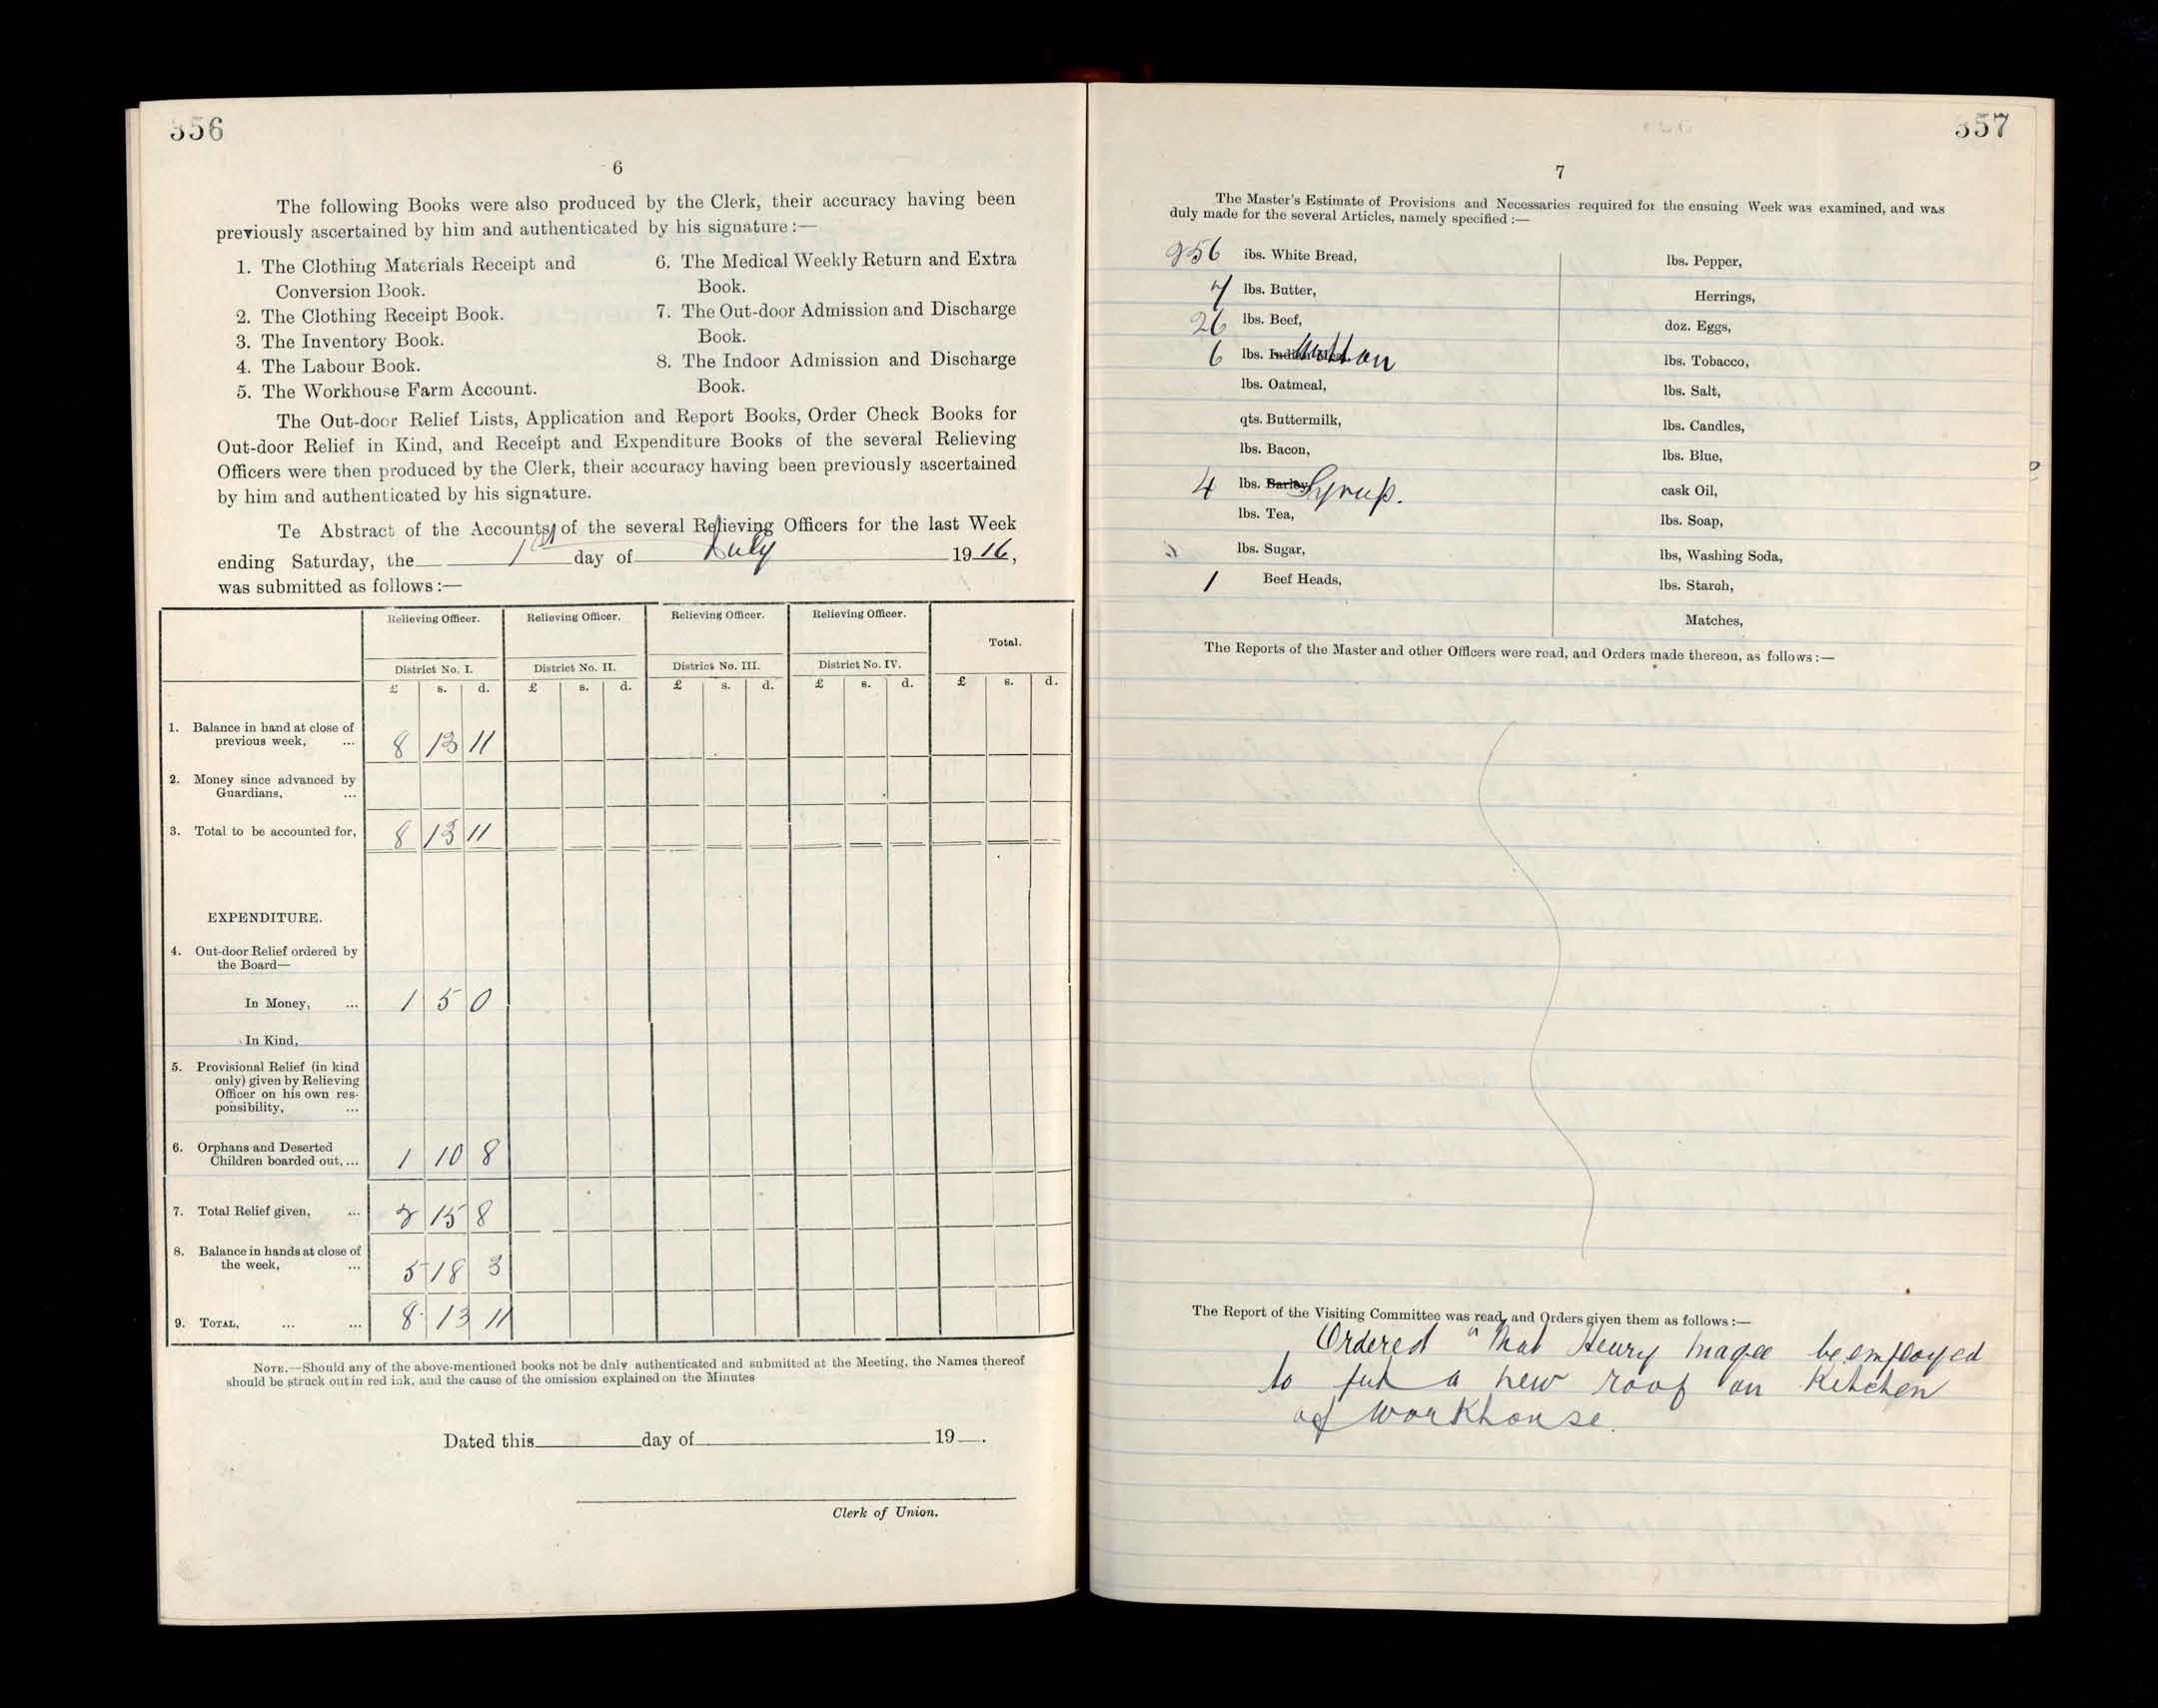 356
6
The following Books were also produced by the Clerk, their accuracy having been
previously ascertained by him and authenticated by his signature :—
1. The Clothing Materials Receipt and
Conversion Book.
2. The Clothing Receipt Book.
3. The Inventory Book.
4. The Labour Book.
5. The Workhouse Farm Account.
6. The Medical Weekly Return and Extra
Book.
7. The Out-door Admission and Discharge
Book.
8. The Indoor Admission and Discharge
Book.
The Out-door Relief Lists, Application and Report Books, Order Check Books for
Out-door Relief in Kind, and Receipt and Expenditure Books of the several Relieving
Officers were then produced by the Clerk, their accuracy having been previously ascertained
by him and authenticated by his signature.
Te Abstract of the Accounts of the several Relieving Officers for the last Week
ending Saturday, the 1st day of July 1916,
was submitted as follows :—
Relieving Officer. Relieving Officer. Relieving Officer. Relieving Officer. Total.
District No. I. District No. II. District No. III. District No. IV.
£ s. d. £ s. d. £ s. d. £ s. d. £ s. d.
1. Balance in hand at close of
previous week, ... 8 13 11
2. Money since advanced by
Guardians, ...
3. Total to be accounted for, 8 13 11
EXPENDITURE.
4. Out-door Relief ordered by
the Board—
In Money, ... 1 5 0
In Kind,
5. Provisional Relief (in kind
only) given by Relieving
Officer on his own res-
ponsibility, ...
6. Orphans and Deserted
Children boarded out, ... 1 10 8
7. Total Relief given, ... 2 15 8
8. Balance in hands at close of
the week, ... 5 18 3
9. TOTAL, ... ... 8 13 11
NOTE.—Should any of the above-mentioned books not be duly authenticated and submitted at the Meeting, the Names thereof
should be struck out in red ink, and the cause of the omission explained on the Minutes
Dated this day of 19 .
Clerk of Union.
357
7
The Master's Estimate of Provisions and Necessaries required for the ensuing Week was examined, and was
duly made for the several Articles, namely specified :—
256 lbs. White Bread,
7 lbs. Butter,
26 lbs. Beef,
6 lbs. Mutton
lbs. Oatmeal,
qts. Buttermilk,
lbs. Bacon,
4 lbs. Barley Syrup.
lbs. Tea,
lbs. Sugar,
1 Beef Heads,
lbs. Pepper,
Herrings,
doz. Eggs,
lbs. Tobacco,
lbs. Salt,
lbs. Candles,
lbs. Blue,
cask Oil,
lbs. Soap,
lbs, Washing Soda,
lbs. Starch,
Matches,
The Reports of the Master and other Officers were read, and Orders made thereon, as follows :—
The Report of the Visiting Committee was read, and Orders given them as follows :—
Ordered "that Henry Magee be employed
to put a new roof on Kitchen
of Workhouse.